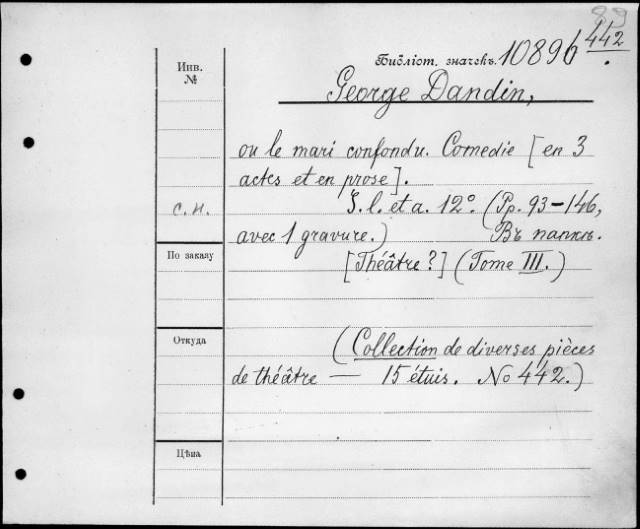 89
Библіот. значекъ. 10896 442
Инв.
№
George Dandin,
ou le mari confondu. Comedie [en 3
actes et en prose].
с. н.
S. l. et a. 12°. (Pp. 93-146,
avec 1 gravure.) Въ папкѣ.
По заказу
[Théâtre?] (Tome III.)
Откуда
(Collection de diverses pièces
de théâtre — 15 étuis. No 442.)
Цѣна